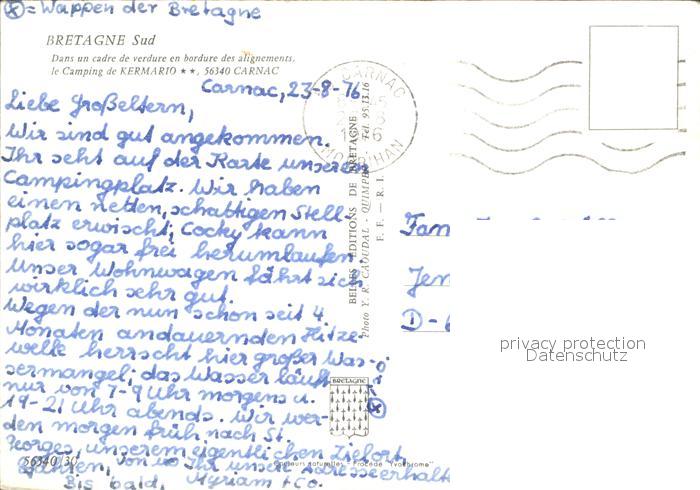 ⊗ = Wappen der Bretagne
BRETAGNE Sud
Dans un cadre de verdure en bordure des alignements,
le Camping de KERMARIO ★★, 56340 CARNAC
Carnac, 23-8-76
Liebe Großeltern,
Wir sind gut angekommen.
Ihr seht auf der Karte unseren
Campingplatz. Wir haben
einen netten, schattigen Stell-
platz erwischt; Cocky kann
hier sogar frei herumlaufen.
Unser Wohnwagen fährt sich
wirklich sehr gut.
Wegen der nun schon seit 4
Monaten andauernden Hitze-
welle herrscht hier großer Was-
sermangel; das Wasser läuft
nur von 7-9 Uhr morgens u.
19-21 Uhr abends. Wir wer-
den morgen früh nach St.
Georges, unserem eigentlichen Zielort,
fahren, von wo Ihr unsere Adresse erhalt
Bis bald, Myriam + Co.
56340/30
Couleurs naturelles - Procédé "Yvochrome"
BELLES ÉDITIONS DE BRETAGNE
Photo Y. R. CAOUDAL - QUIMPER - Tél. 95.13.16
F. F. — R. I.
CARNAC
MORBIHAN
BRETAGNE
⊗
Fam
Jen
D-
privacy protection
Datenschutz